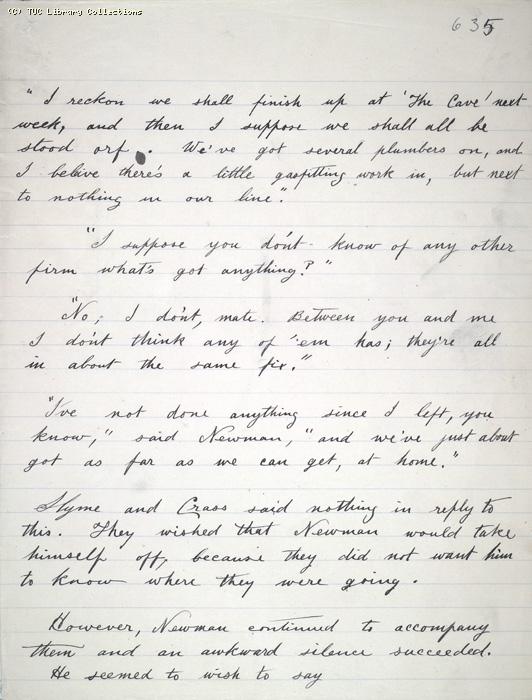 (C) TUC Library Collections
635
"I reckon we shall finish up at 'The Cave' next
week, and then I suppose we shall all be
stood orf. We've got several plumbers on, and
I belive there's a little gasfitting work in, but next
to nothing in our line".
"I suppose you do'nt know of any other
firm what's got anything?"
"No; I do'nt, mate. Between you and me
I do'nt think any of 'em has; they're all
in about the same fix."
"I've not done anything since I left, you
know," said Newman, "and we've just about
got as far as we can get, at home."
Slyme and Crass said nothing in reply to
this. They wished that Newman would take
himself off, because they did not want him
to know where they were going.
However, Newman continued to accompany
them and an awkward silence succeeded.
He seemed to wish to say